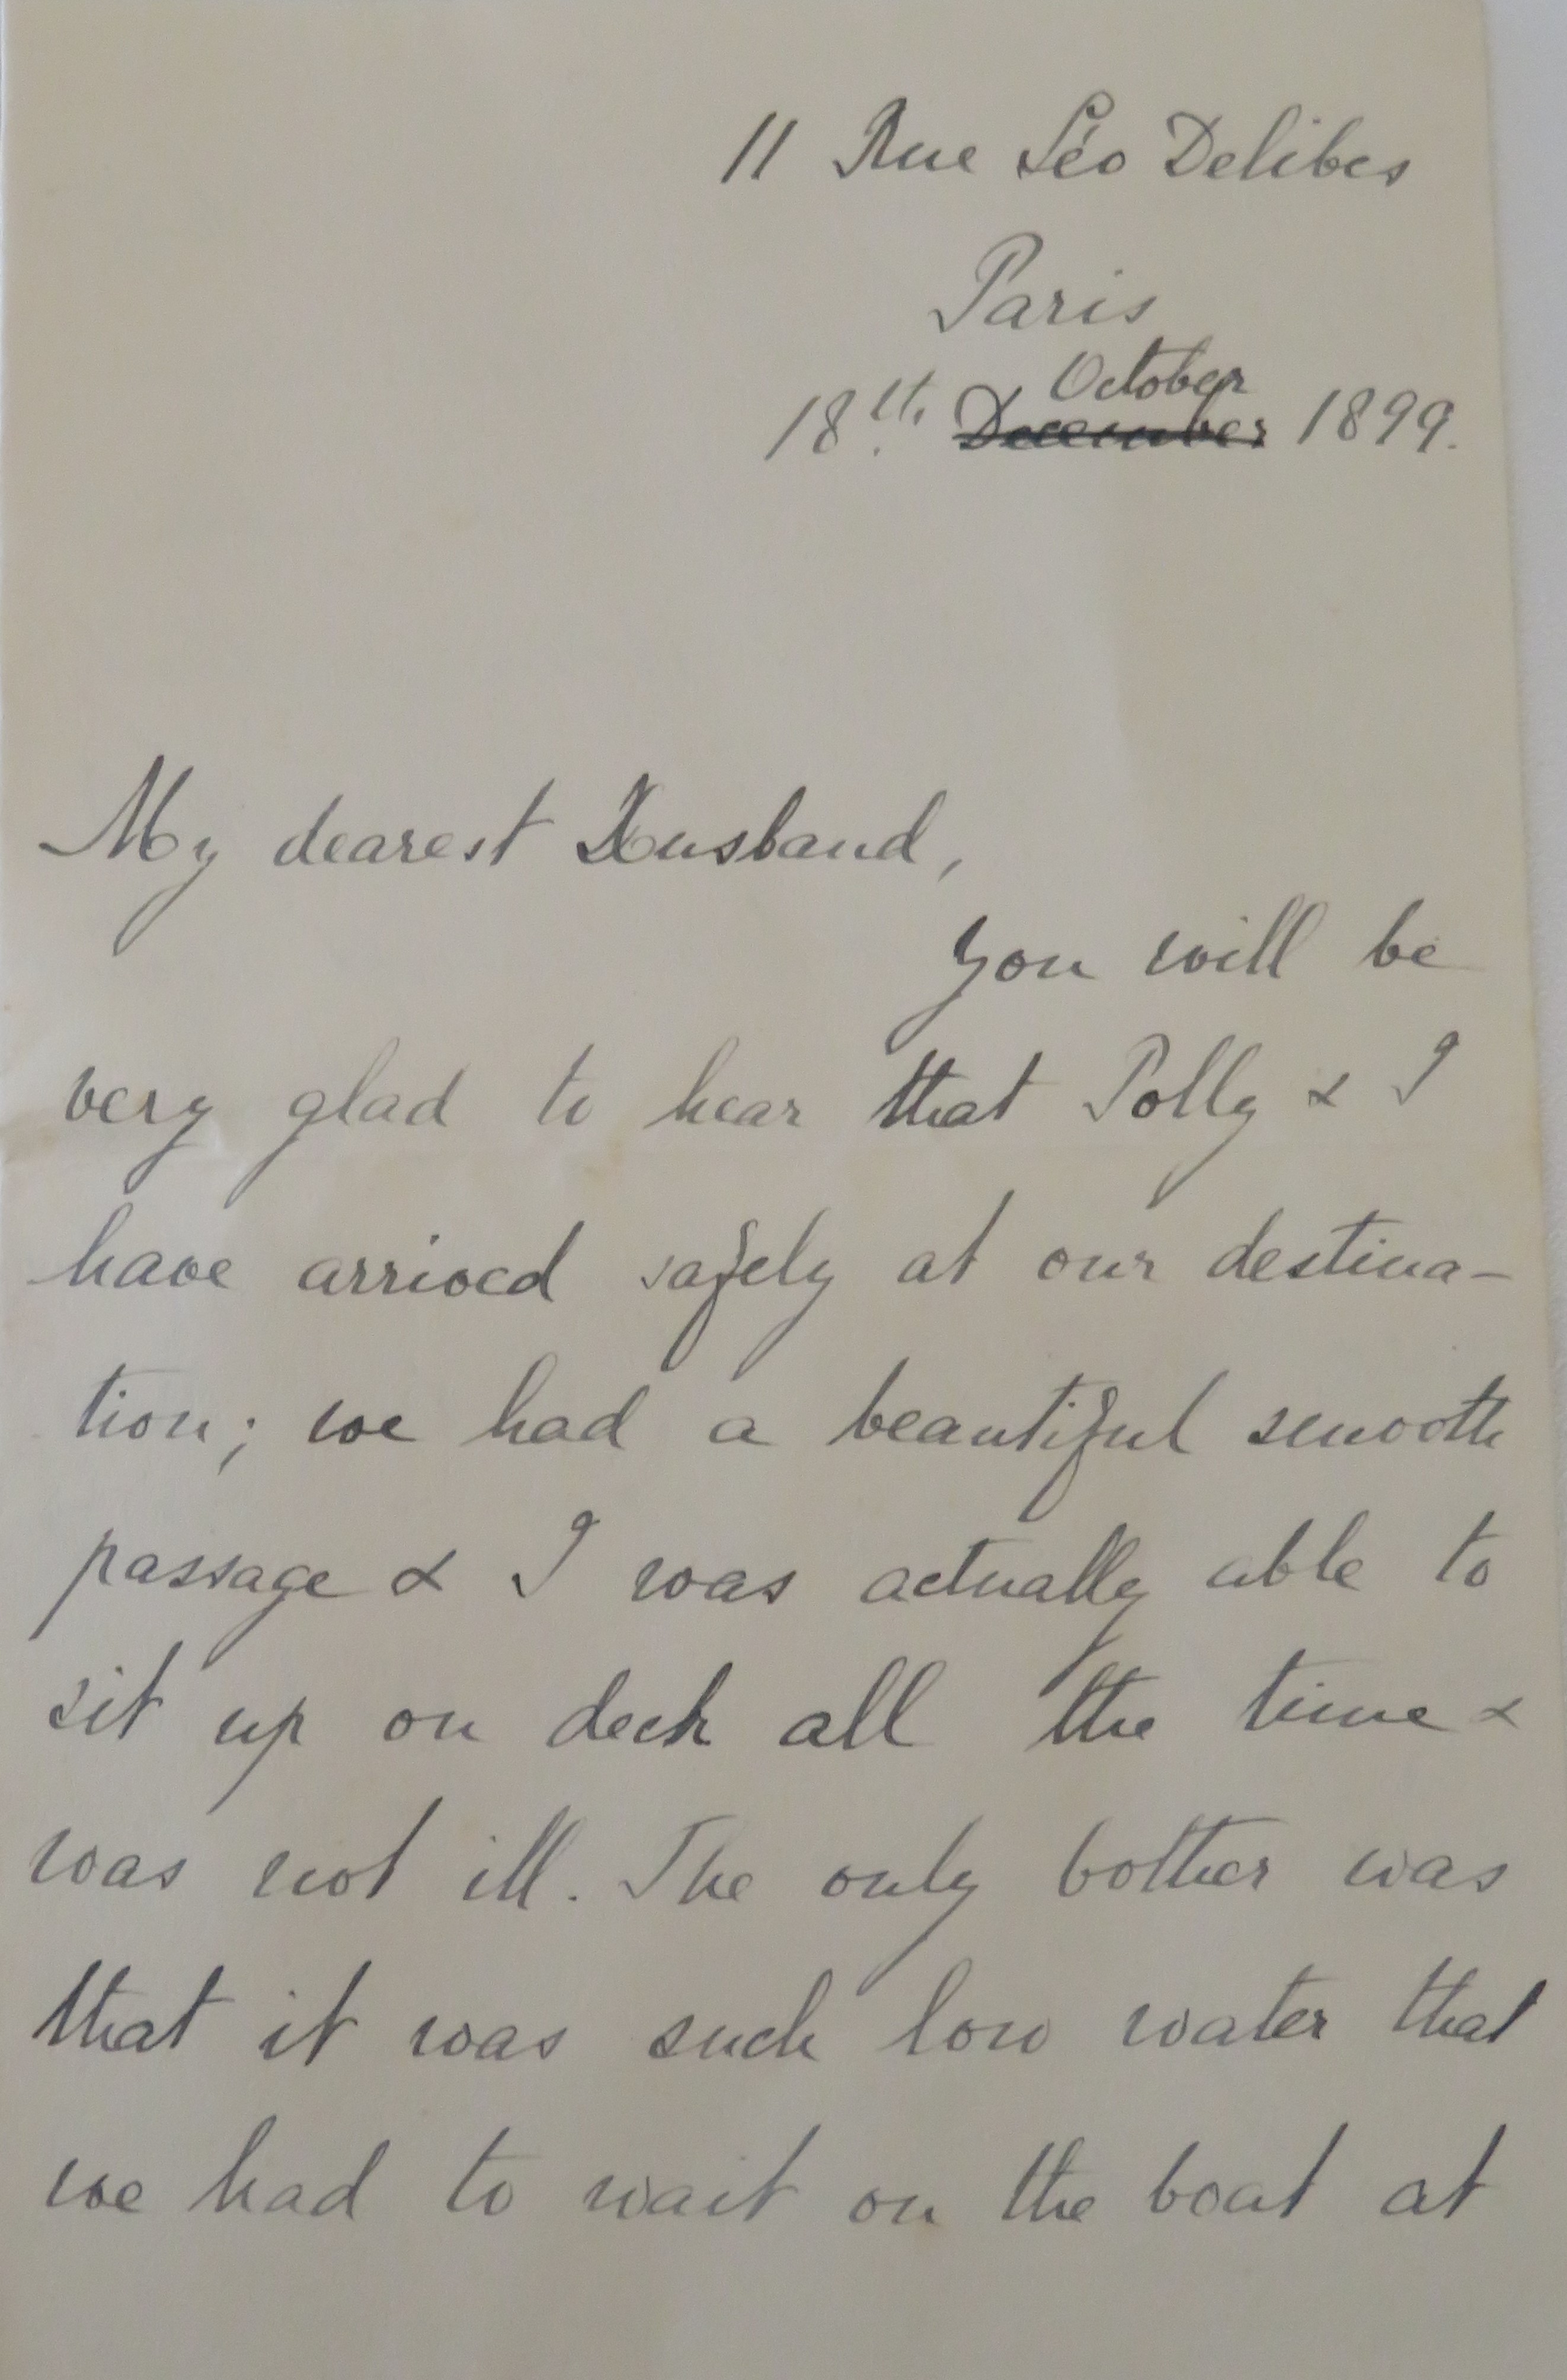 11 Rue Léo Delibes
Paris
October
18th. December 1899.
My dearest Husband,
You will be
very glad to hear that Polly & I
have arrived safely at our destina-
tion; we had a beautiful smooth
passage & I was actually able to
sit up on deck all the time &
was not ill. The only bother was
that it was such low water that
we had to wait on the boat at